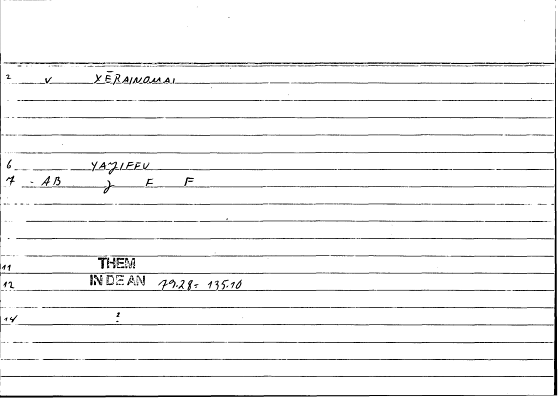 2 v XĒRAINOMAI
6 YAJIFFU
7 - AB J F F
11 THEM
12 IN DE AN 79.28 = 135.10
14 2